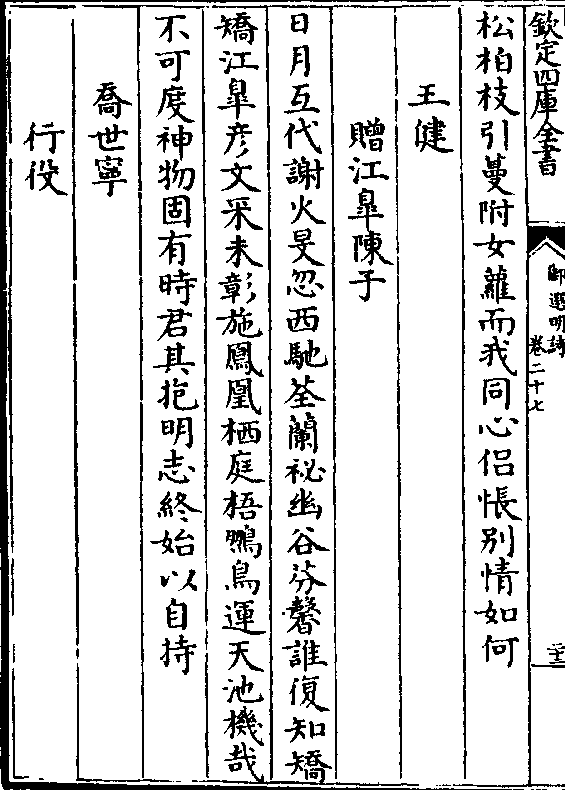 欽定四庫全書
御選明詩
卷二十七
二十三
松柏枝引蔓附女蘿而我同心侣悵別情如何
王健
贈江臯陳子
日月互代謝火旻忽西馳荃蘭祕幽谷芬馨誰復知矯
矯江臯彦文采未彰施鳳凰栖庭梧鵬鳥運天池機哉
不可度神物固有時君其抱明志終始以自持
喬世寧
行役